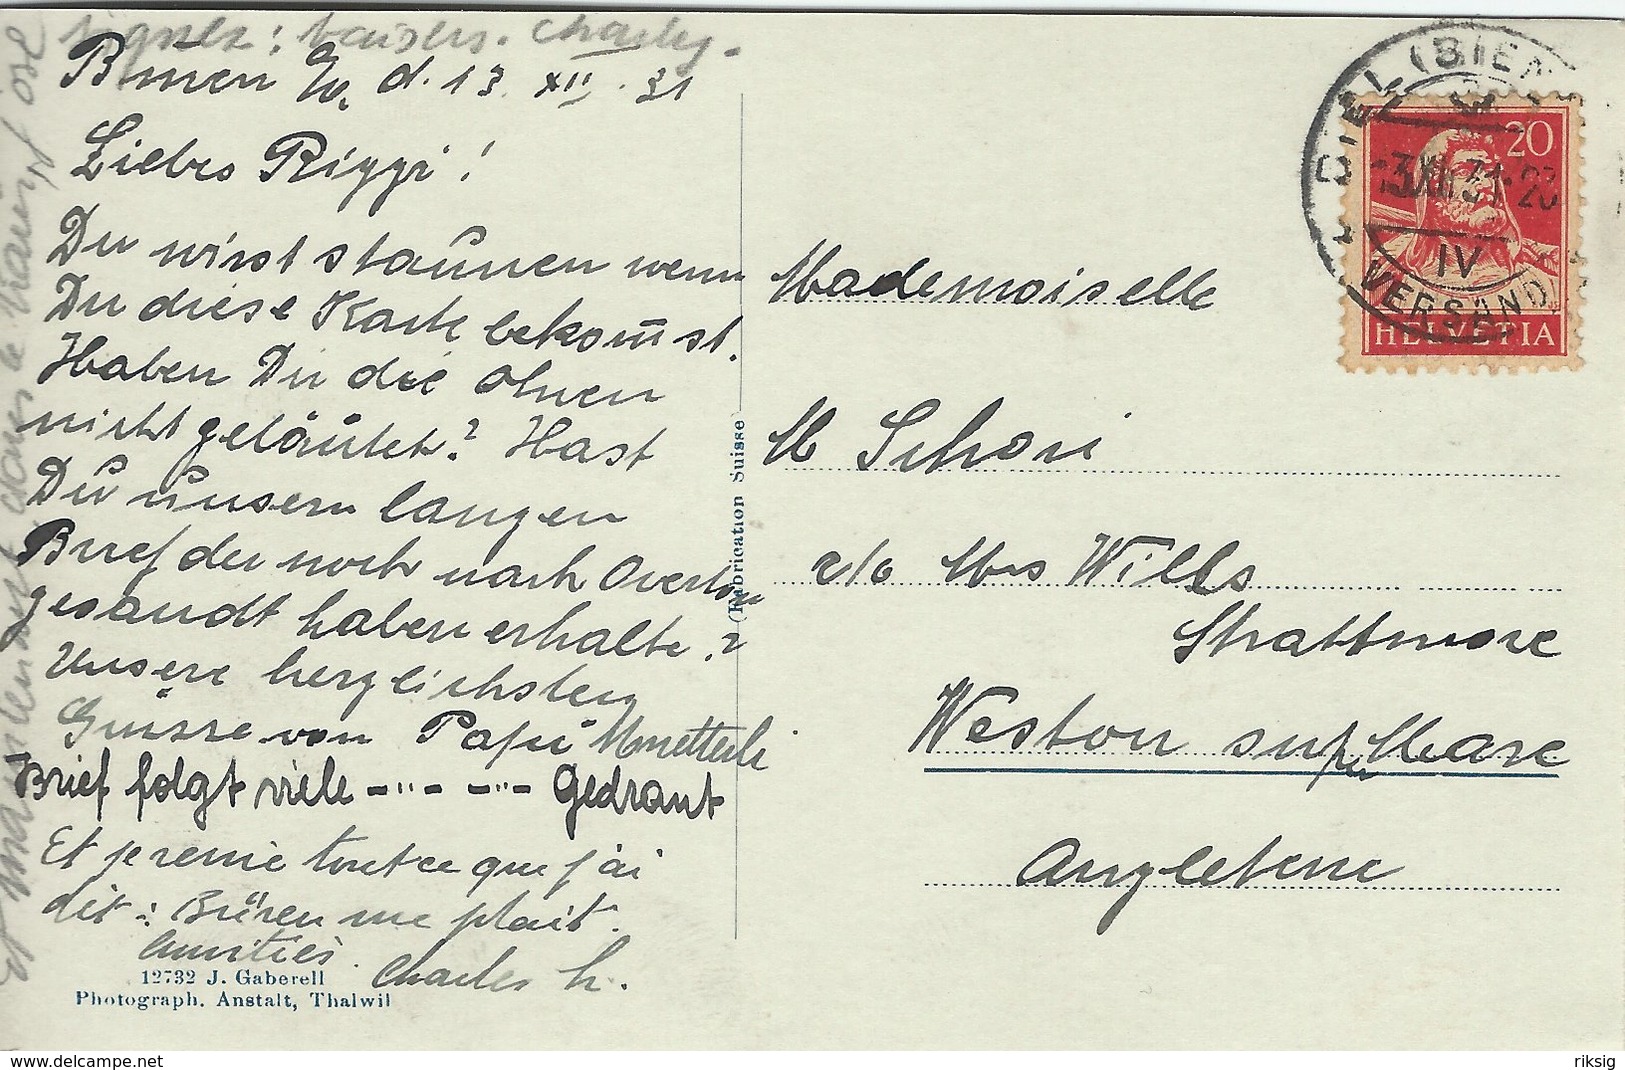 signer : baisers. Charly.
Büren a/A. d. 13. XII. 31
Liebes Riggi!
Du wirst staunen wenn
Du diese Karte bekommst.
Haben Du die Ohren
nicht geläutet? Hast
Du unsern langen
Brief den noch nach Overton
gesandt haben erhalten?
Unsere herzlichsten
Grüsse von Papu Muetterli
Brief folgt viele -"- -"- Gedraut
Et je renie tout ce que j'ai
dit : Büren me plait.
Amitiés. Charles h.
Et maintenant dans le train j'ose
12732 J. Gaberell
Photograph. Anstalt, Thalwil
(Fabrication Suisse)
BIEL (BIENNE)
13.XII.31-20
IV
VERSAND
20
HELVETIA
Mademoiselle
M Schori
c/o Mrs Wills
Strattmore
Weston super Mare
Angleterre
www.delcampe.net
riksig